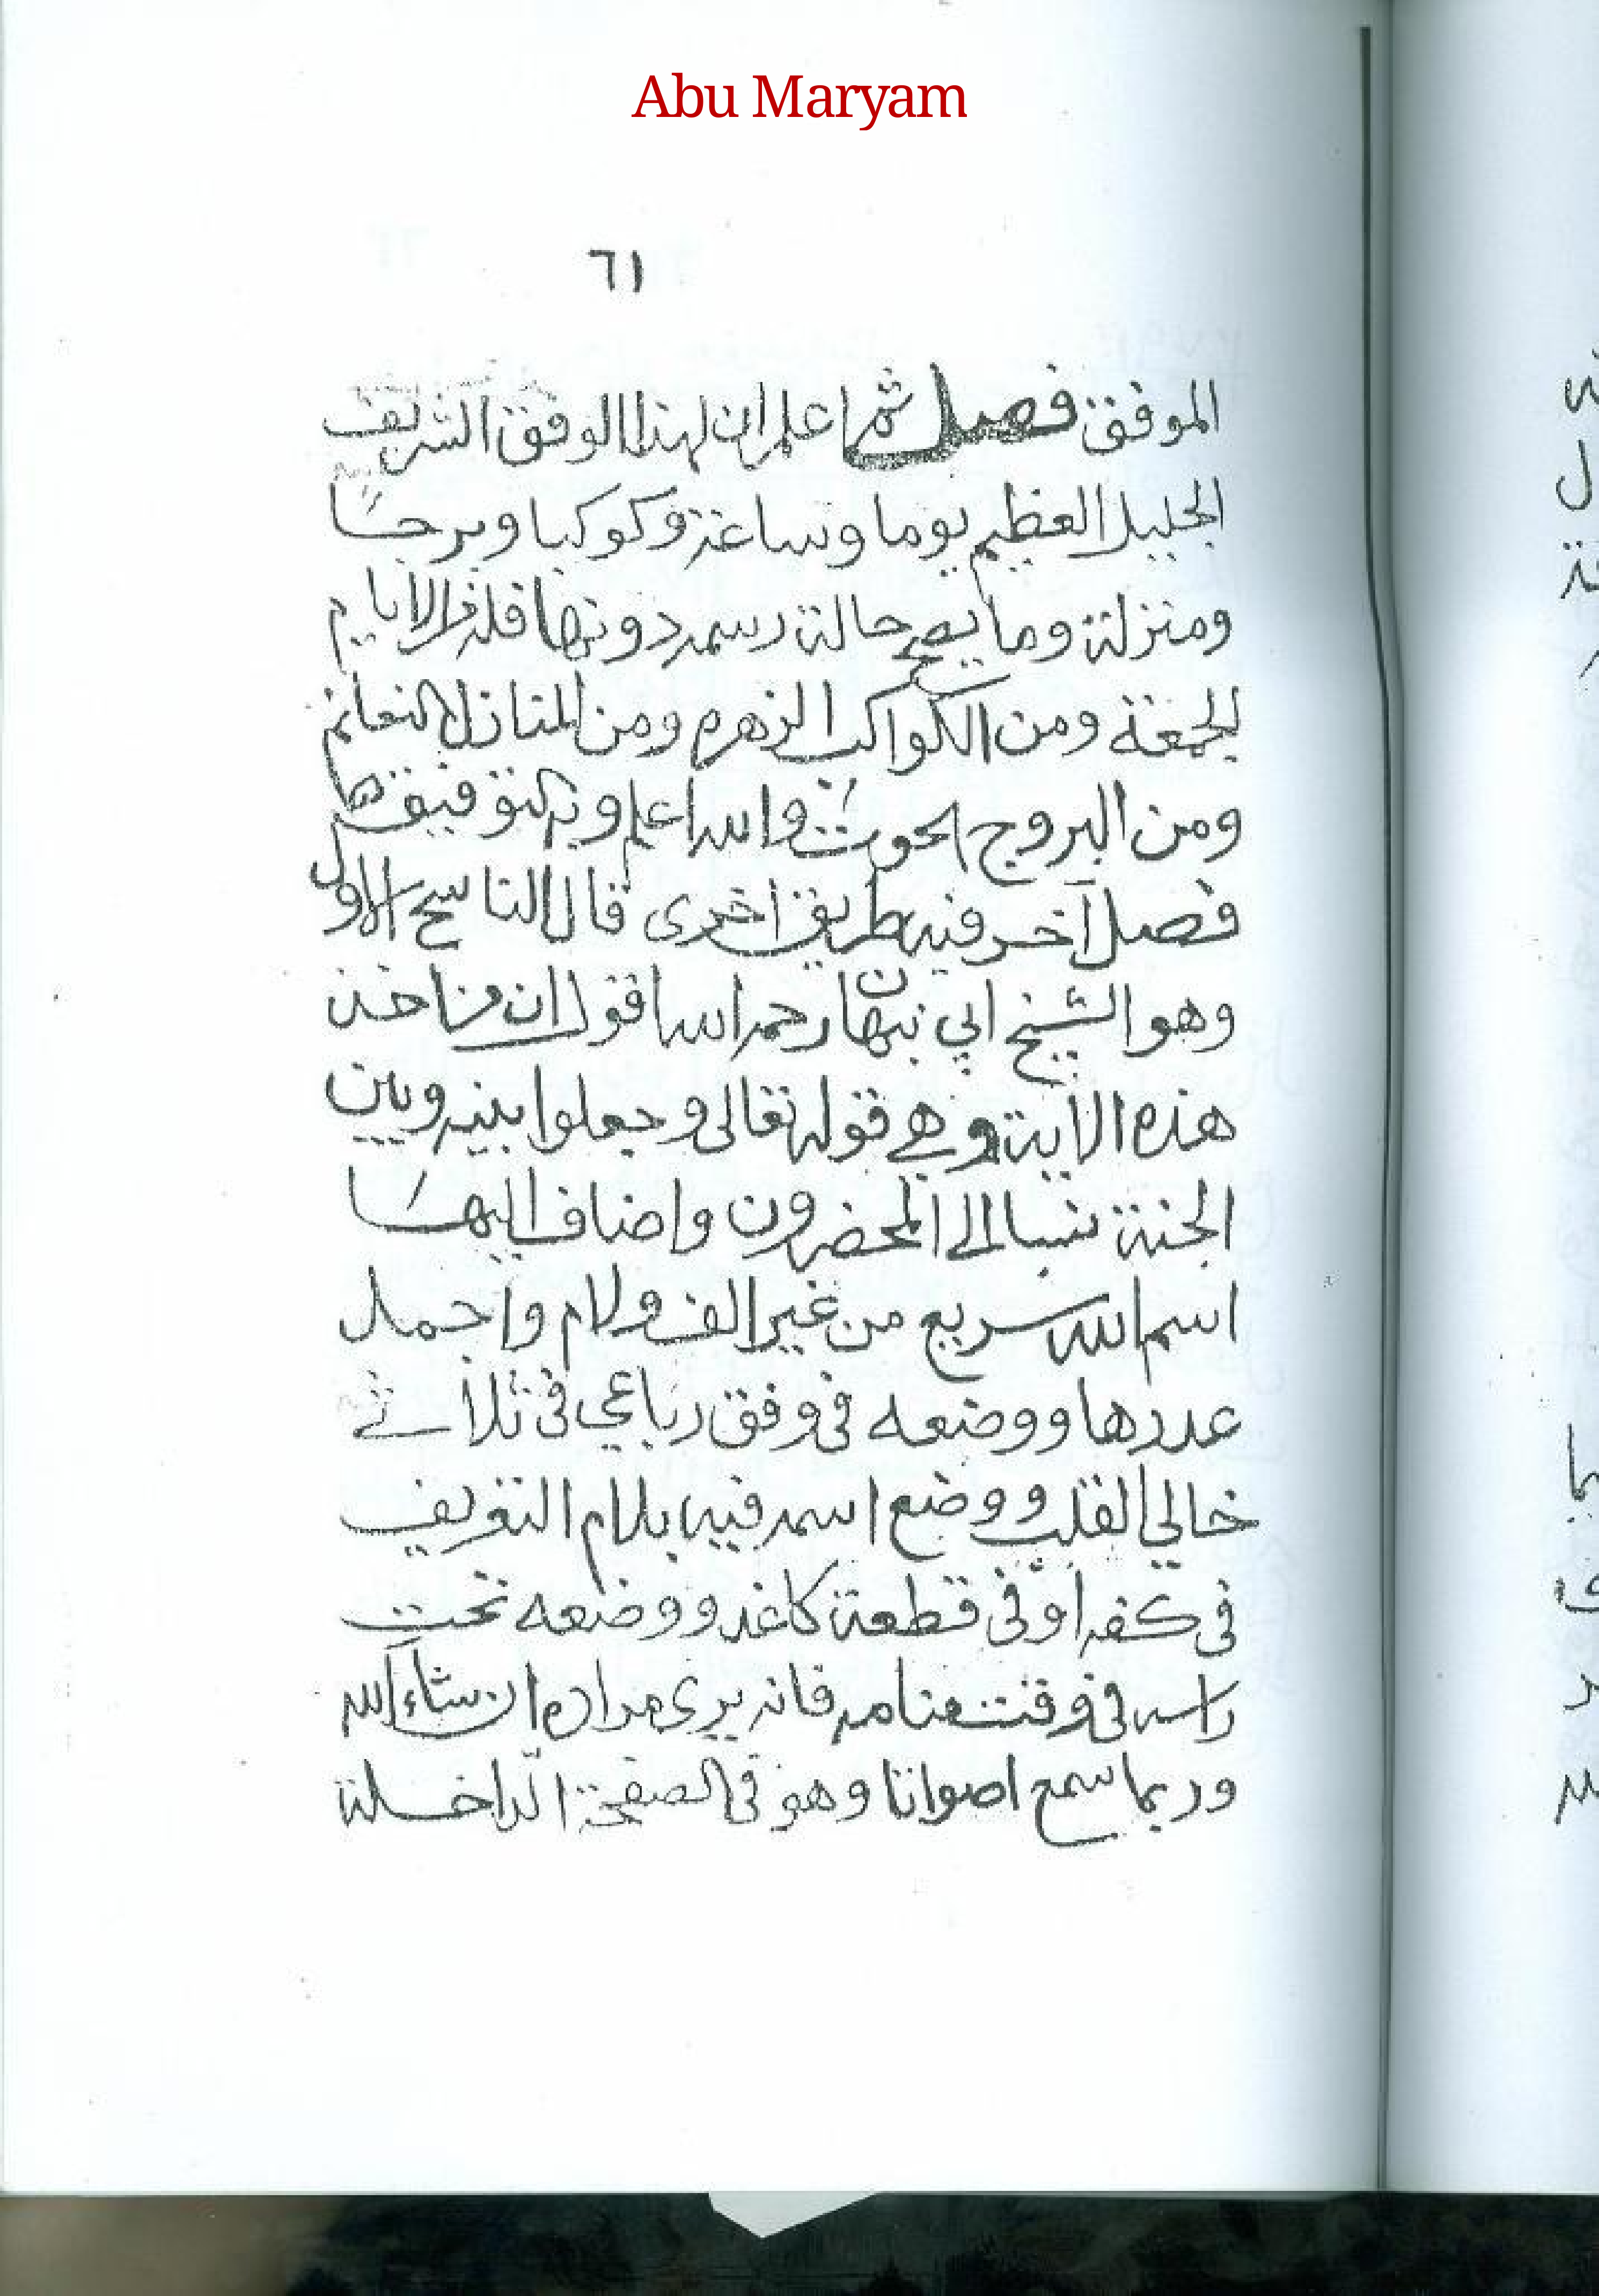 Abu Maryam
٦١
الموفق فصل ثم اعلم ان لهذا الوفق الشريف
الجليل العظيم يوما وساعة وكوكبا وبرجا
ومنزلة وما يصح حالة رسمه دونها فله الايام
الجمعة ومن الكواكب الزهره ومن المنازل النعائم
ومن البروج الحوت والله اعلم وبه التوفيق
فصل آخر فيه طريق اخرى قال الناسخ الاول
وهو الشيخ ابي نبهان رحمه الله اقول ان من اخذ
هذه الاية وهي قوله تعالى وجعلوا بينه وبين
الجنة نسبا الى المحضرون واضاف اليها
اسم الله سريع من غير الف ولام واجمل
عددها ووضعه في وفق رباعي في ثلاثي
خالي القلب ووضع اسمه فيه بلام التعريف
في كفه او في قطعة كاغد ووضعه تحت
راسه في وقت منامه فانه يرى مراده ان شاء الله
وربما سمع اصواتا وهو في الصفحة الداخلة